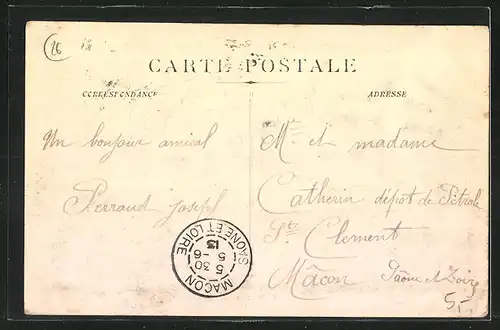 26
CARTE POSTALE
CORRESPONDANCE
ADRESSE
Un bonjour amical
Perraud joseph
Mr et madame
Catherin dépot de Pétrole
St Clement
Mâcon Saône et Loire
MACON
5 30
5 - 6
13
SAONE ET LOIRE